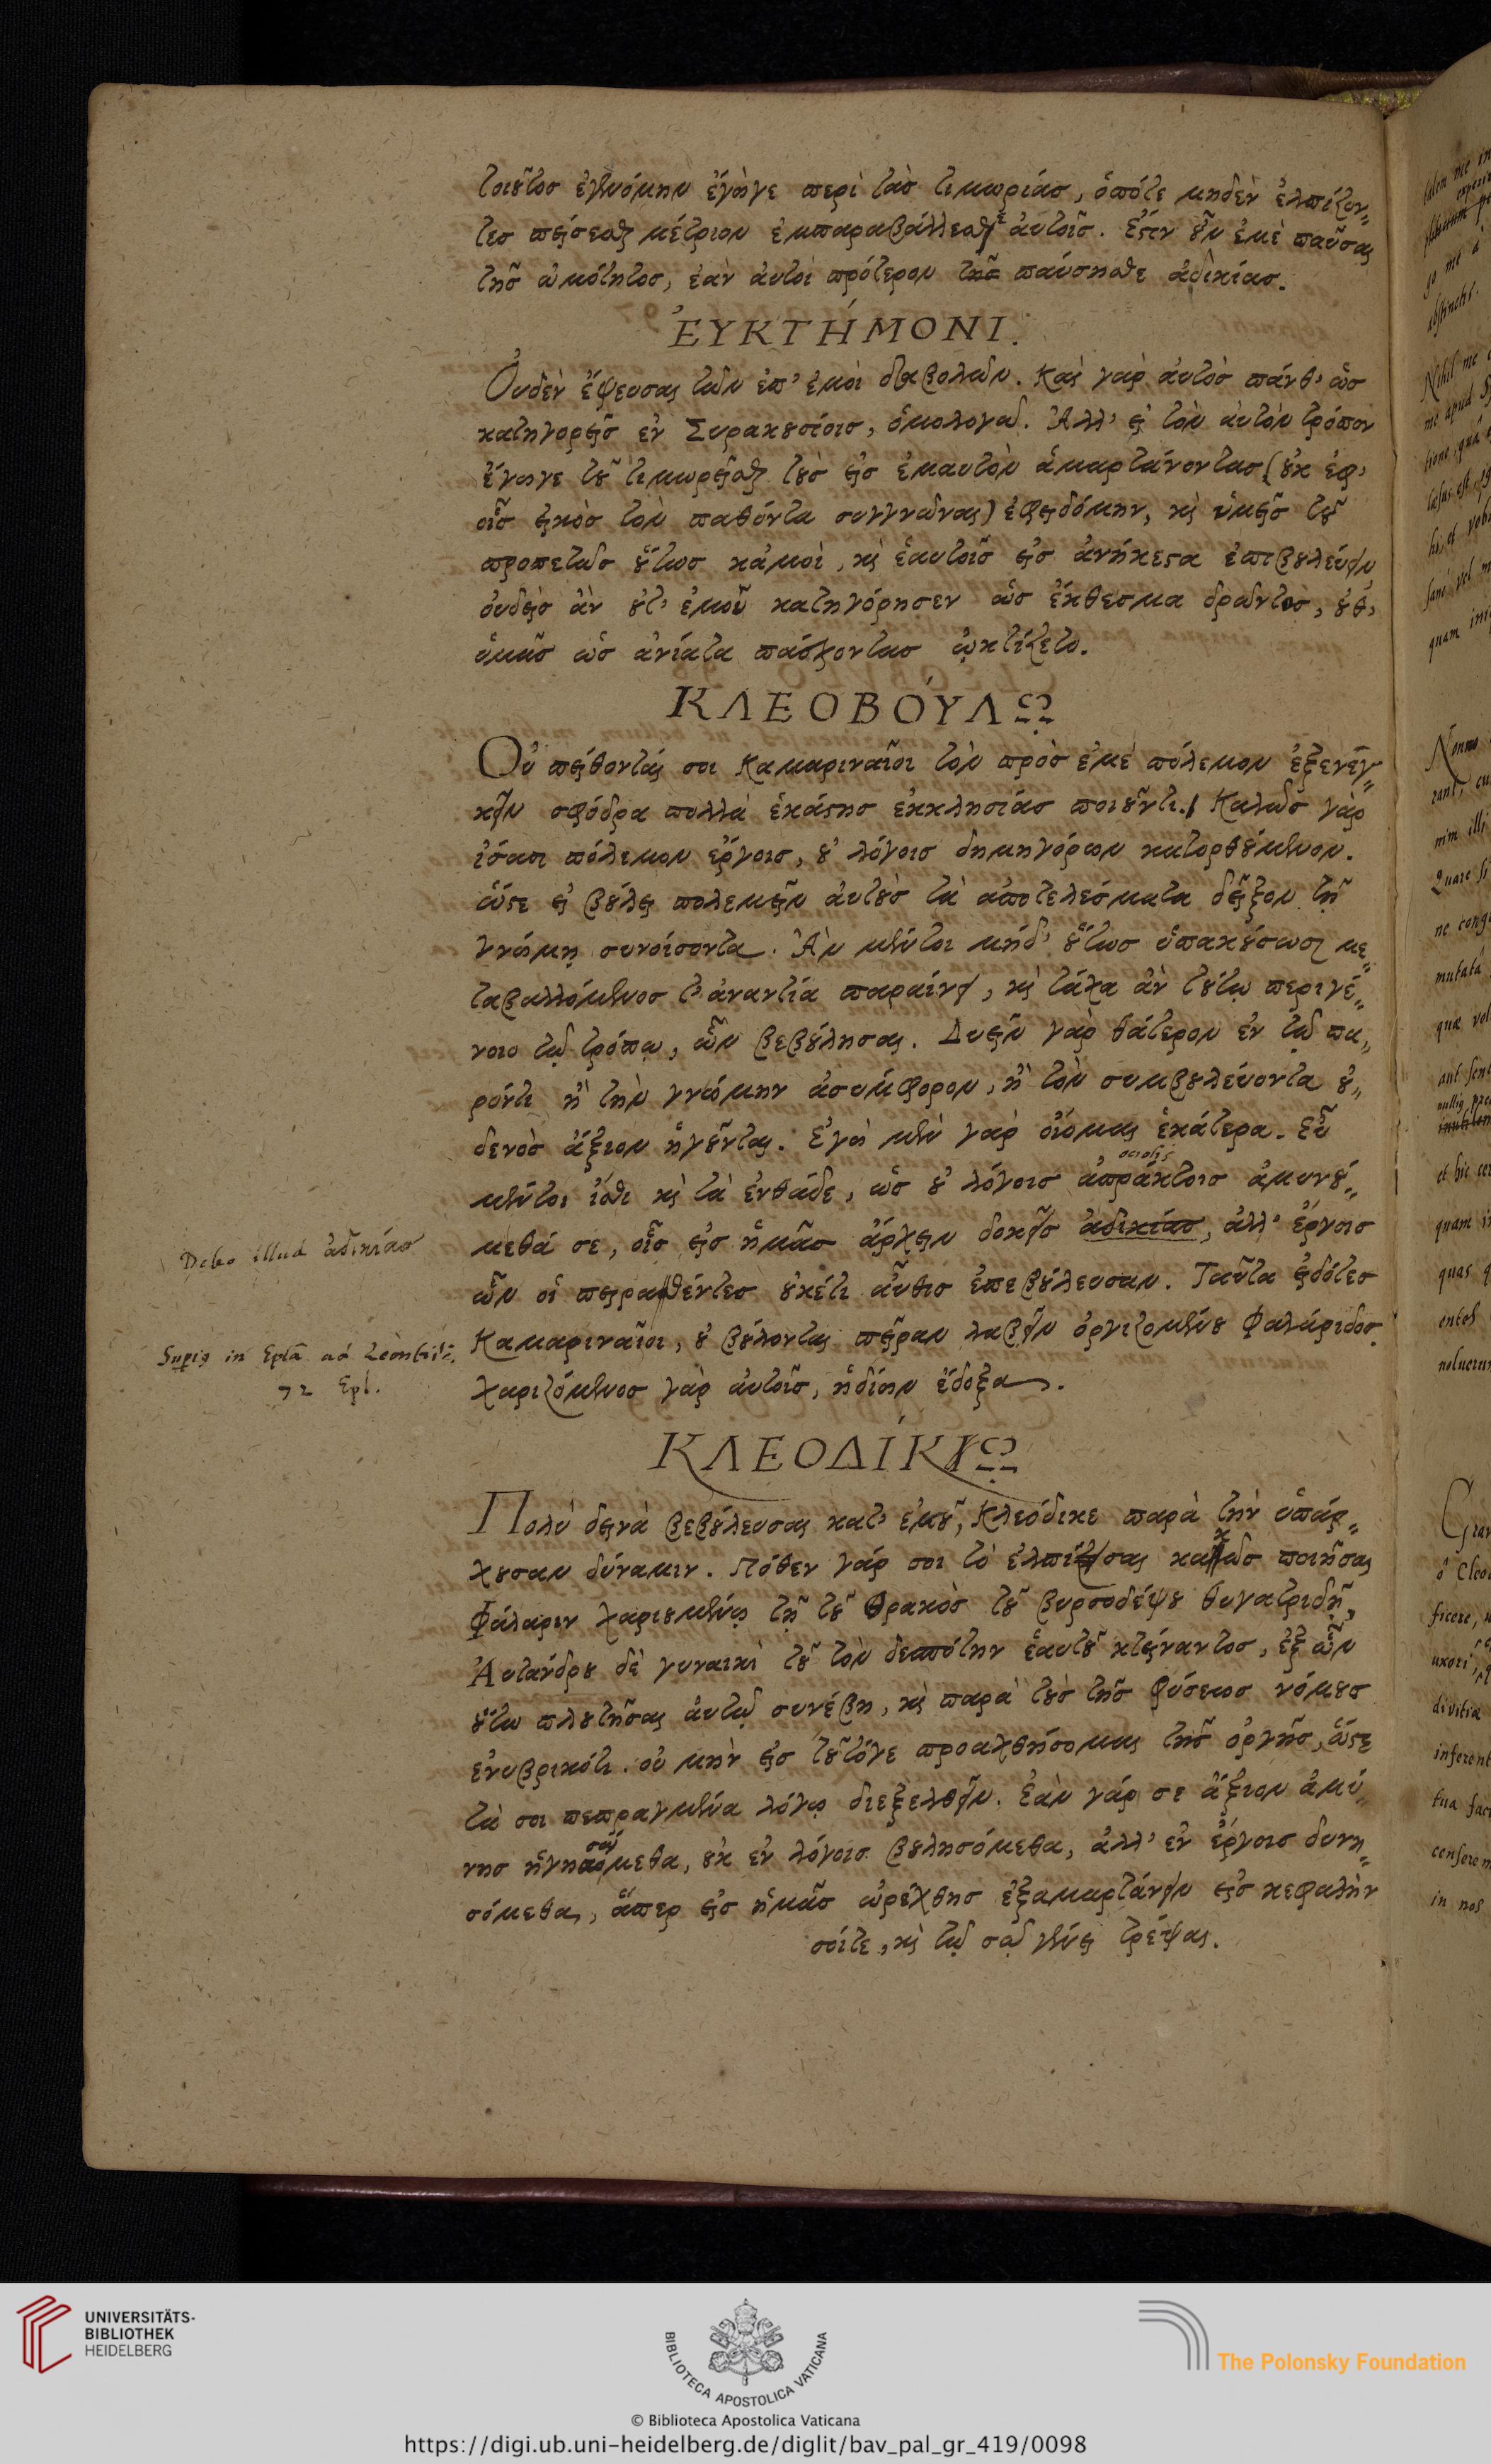 τοιοῦτος ἐγενόμην ἔγωγε περὶ τὰς τιμωρίας, ὁπότε μηδὲν ἐλπίζον„
τες πείσεσθαι μέτριον ἐμπαραβάλλεσθε αὐτοῖς. Ἔστιν οὖν ἐμὲ παῦσαι
τῆς ὠμότητος, ἐὰν αὐτοὶ πρότερον τῆς παύσησθε ἀδικίας.
ἘΥΚΤΉΜΟΝΙ.
Οὐδὲν ἔψευσαι τῶν ἐπ' ἐμοὶ διαβολῶν. Καὶ γὰρ αὐτὸς πάνθ' ὡς
κατηγορεῖς ἐν Συρακουσίοις, ὁμολογῶ. Ἀλλ' εἰ τὸν αὐτὸν τρόπον
ἔγωγε τοῦ τιμωρεῖσθαι τοὺς εἰς ἐμαυτὸν ἁμαρτάνοντας (οὐκ ἐφ'
οἷς εἰκὸς τὸν παθόντα συγγνῶναι) ἐφειδόμην, καὶ ὑμεῖς τοῦ
προπετῶς οὕτως κἀμοὶ, καὶ ἑαυτοῖς εἰς ἀνήκεστα ἐπιβουλεύειν
οὐδεὶς ἂν οὔτ' ἐμοῦ κατηγόρησεν ὡς ἔκθεσμα δρῶντος, οὔθ'
ὑμᾶς ὡς ἀνίατα πάσχοντας ᾠκτίζετο.
ΚΛΕΟΒΟΎΛῼ
Οὐ πείθονταί σοι Καμαριναῖοι τὸν πρὸς ἐμὲ πόλεμον ἐξενέγ„
κειν σφόδρα πολλὰ ἑκάστης ἐκκλησίας ποιοῦντι. Καλῶς γὰρ
ἴσασι πόλεμον ἔργοις, οὐ λόγοις δημηγόρων κατορθούμενον.
ὥστε εἰ βούλει πολεμεῖν αὐτοὺς τὰ ἀποτελέσματα δεῖξον τῇ
γνώμῃ συνοίσοντα. Ἂν μέντοι μηδ' οὕτως ὑπακούσωσι με„
ταβαλλόμενος τ' ἀναντία παραίνει, καὶ τάχα ἂν τούτῳ περιγέ„
νοιο τῷ τρόπῳ, ὧν βεβούλησαι. Δυεῖν γὰρ θάτερον ἐν τῷ πα„
ρόντι ἢ τὴν γνώμην ἀσύμφορον, ἢ τὸν συμβουλεύοντα οὐ„
δενὸς ἄξιον ἡγοῦνται. Ἐγὼ μὲν γὰρ οἴομαι ἑκάτερα. Εὖ
μέντοι ἴσθι καὶ τὰ ἐνθάδε, ὡς οὐ λόγοις ἀπράκτοις ἀμυνού„
μεθά σε, οἷς εἰς ἡμᾶς ἄρχειν δοκεῖς ἀδικίας, ἀλλ' ἔργοις
Debo illud ἀδικίας
ὧν οἱ πειραθέντες οὐκέτι αὖθις ἐπεβούλευσαν. Ταῦτα εἰδότες
Καμαριναῖοι, οὐ βούλονται πεῖραν λαβεῖν ὀργιζομένου Φαλάριδος.
72 Epl.
χαριζόμενος γὰρ αὐτοῖς, ἡδίων ἔδοξα.
ΚΛΕΟΔΊΚΙῼ
Πολὺ δεινὰ βεβούλευσαι κατ' ἐμοῦ, Κλεόδικε παρὰ τὴν ὑπάρ„
χουσαν δύναμιν. Πόθεν γάρ σοι τὸ ἐλπίσαι κακῶς ποιῆσαι
Φάλαριν χαριουμένῳ τῇ τοῦ Θρακὸς τοῦ βυρσοδέψου θυγατριδῇ,
Αὐτάνδρου δὲ γυναικὶ τοῦ τὸν δεσπότην ἑαυτοῦ κτείναντος, ἐξ ὧν
οὕτω πλουτῆσαι αὐτῷ συνέβη, καὶ παρὰ τοὺς τῆς φύσεως νόμους
ἐνυβρικότι. οὐ μὴν εἰς τοῦτόγε προαχθήσομαι τῆς ὀργῆς, ὥστε
τά σοι πεπραγμένα λόγῳ διεξελθεῖν. Ἐὰν γάρ σε ἄξιον ἀμύ„
νης ἡγησώμεθα, οὐκ ἐν λόγοις βουλησόμεθα, ἀλλ' ἐν ἔργοις δυνη„
σόμεθα, ἅπερ εἰς ἡμᾶς ὠρέχθης ἐξαμαρτάνειν εἰς κεφαλὴν
σοίτε, καὶ τῷ σῷ γένει τρέψαι.
UNIVERSITÄTS-
BIBLIOTHEK
HEIDELBERG
BIBLIOTECA APOSTOLICA VATICANA
The Polonsky Foundation
© Biblioteca Apostolica Vaticana
https://digi.ub.uni-heidelberg.de/diglit/bav_pal_gr_419/0098